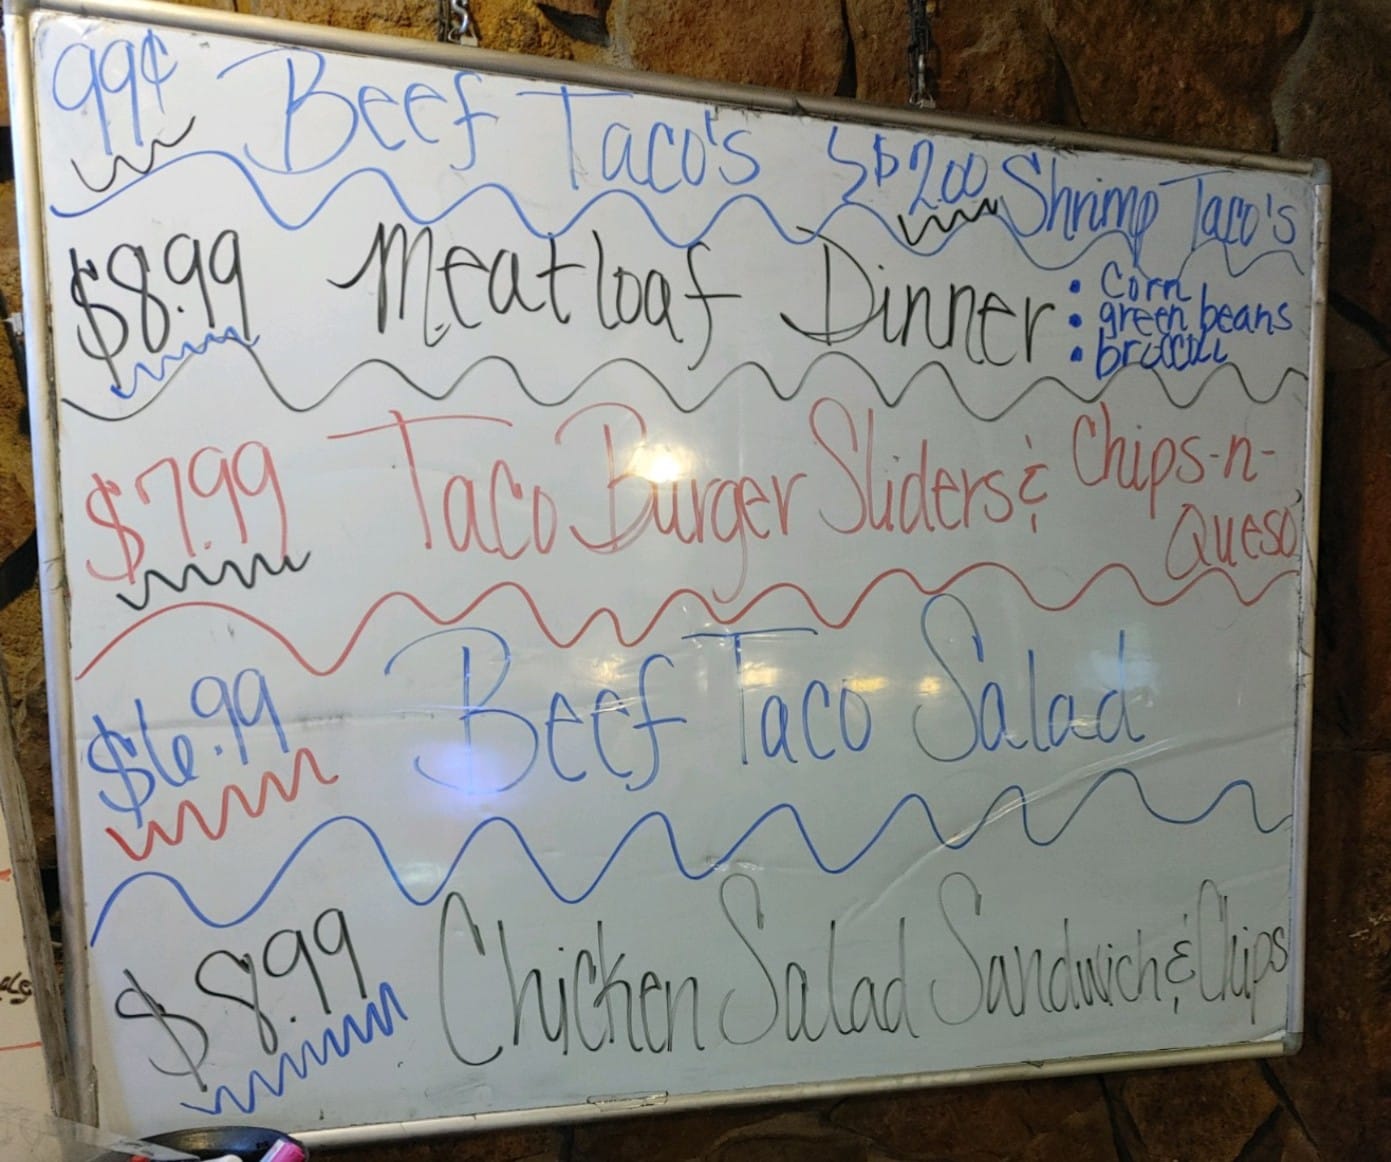 99¢ Beef Taco's $2.00 Shrimp Taco's
$8.99 Meatloaf Dinner
• Corn
• green beans
• broccoli
$7.99 Taco Burger Sliders & Chips-n-
Queso
$6.99 Beef Taco Salad
$8.99 Chicken Salad Sandwich & Chips